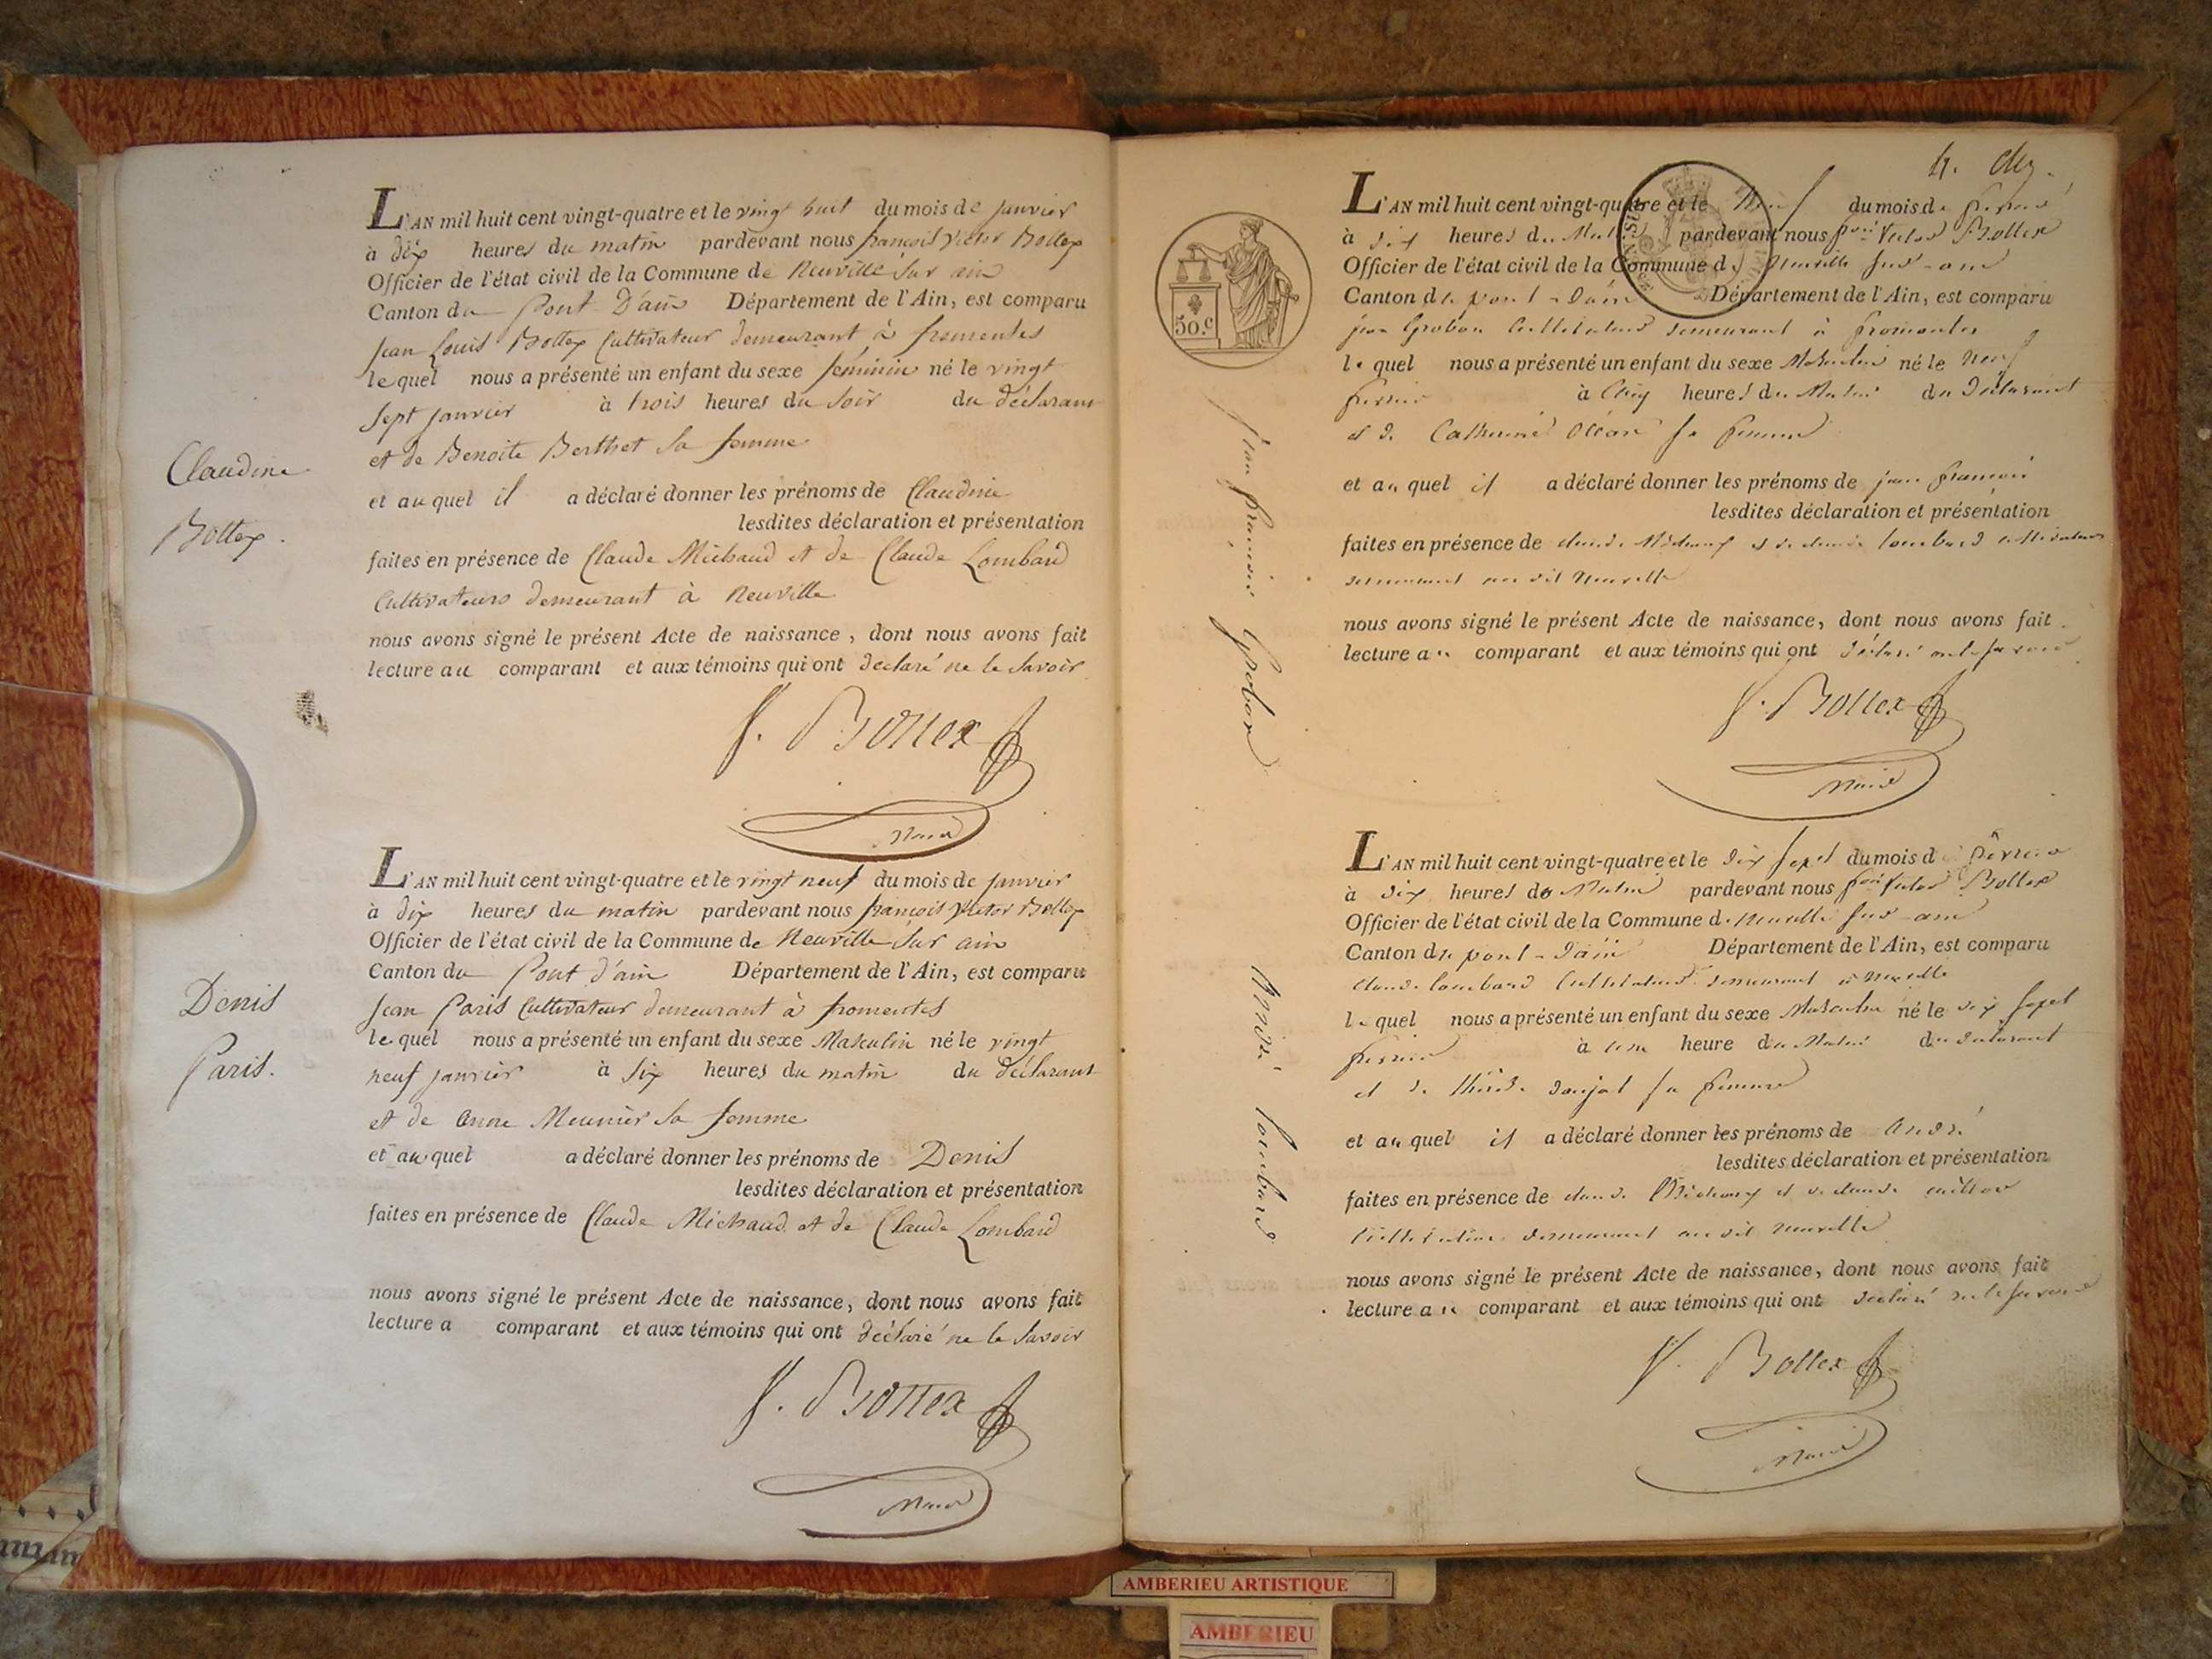 L'AN mil huit cent vingt-quatre et le vingt huit du mois de janvier
à dix heures du matin pardevant nous françois victor Bottex
Officier de l'état civil de la Commune de Neuville sur ain
Canton du Pont D'ain Département de l'Ain, est comparu
Jean Louis Bottex Cultivateur demeurant à fromentes
lequel nous a présenté un enfant du sexe féminin né le vingt
sept janvier à trois heures du soir du déclarant
et de Benoite Berthet sa femme
Claudine
Bottex.
et auquel il a déclaré donner les prénoms de Claudine
lesdites déclaration et présentation
faites en présence de Claude Michaud et de Claude Lombard
Cultivateurs demeurant à Neuville
nous avons signé le présent Acte de naissance, dont nous avons fait
lecture au comparant et aux témoins qui ont declaré ne le savoir
f. Bottex
L'AN mil huit cent vingt-quatre et le vingt neuf du mois de janvier
à dix heures du matin pardevant nous françois victor Bottex
Officier de l'état civil de la Commune de Neuville sur ain
Canton du Pont d'ain Département de l'Ain, est comparu
Jean Paris Cultivateur demeurant à fromentes
lequel nous a présenté un enfant du sexe Masculin né le vingt
neuf janvier à six heures du matin du déclarant
et de anne Meunier sa femme
Denis
Paris.
et auquel a déclaré donner les prénoms de Denis
lesdites déclaration et présentation
faites en présence de Claude Michaud et de Claude Lombard
nous avons signé le présent Acte de naissance, dont nous avons fait
lecture a comparant et aux témoins qui ont déclaré ne le savoir
f. Bottex
50.c
L'AN mil huit cent vingt-quatre et le Neuf du mois de fevrier
à dix heures du Matin pardevant nous victor Bottex
Officier de l'état civil de la Commune de Neuville sur-ain
Canton de pont-d'ain Département de l'Ain, est comparu
jean Grobon Cultivateur demeurant à fromentes
lequel nous a présenté un enfant du sexe Masculin né le neuf
fevrier à Cinq heures du Matin du Déclarant
et de Catherine sa femme
et auquel il a déclaré donner les prénoms de jean françois
lesdites déclaration et présentation
faites en présence de claude et de claude lombard cultivateurs
demeurant au dit Neuville
nous avons signé le présent Acte de naissance, dont nous avons fait
lecture au comparant et aux témoins qui ont déclaré ne le savoir
f. Bottex
Maire
Jean françois Grobon
L'AN mil huit cent vingt-quatre et le dix sept du mois de fevrier
à dix heures du Matin pardevant nous victor Bottex
Officier de l'état civil de la Commune de Neuville sur-ain
Canton de pont-d'ain Département de l'Ain, est comparu
claude lombard Cultivateur demeurant à Neuville
lequel nous a présenté un enfant du sexe Masculin né le dix sept
fevrier à une heure du Matin du déclarant
et de sa femme
et auquel il a déclaré donner les prénoms de André
lesdites déclaration et présentation
faites en présence de claude et de claude
Cultivateurs demeurant au dit neuville
nous avons signé le présent Acte de naissance, dont nous avons fait
lecture au comparant et aux témoins qui ont déclaré ne le savoir
f. Bottex
Maire
André lombard
AMBERIEU ARTISTIQUE
AMBERIEU